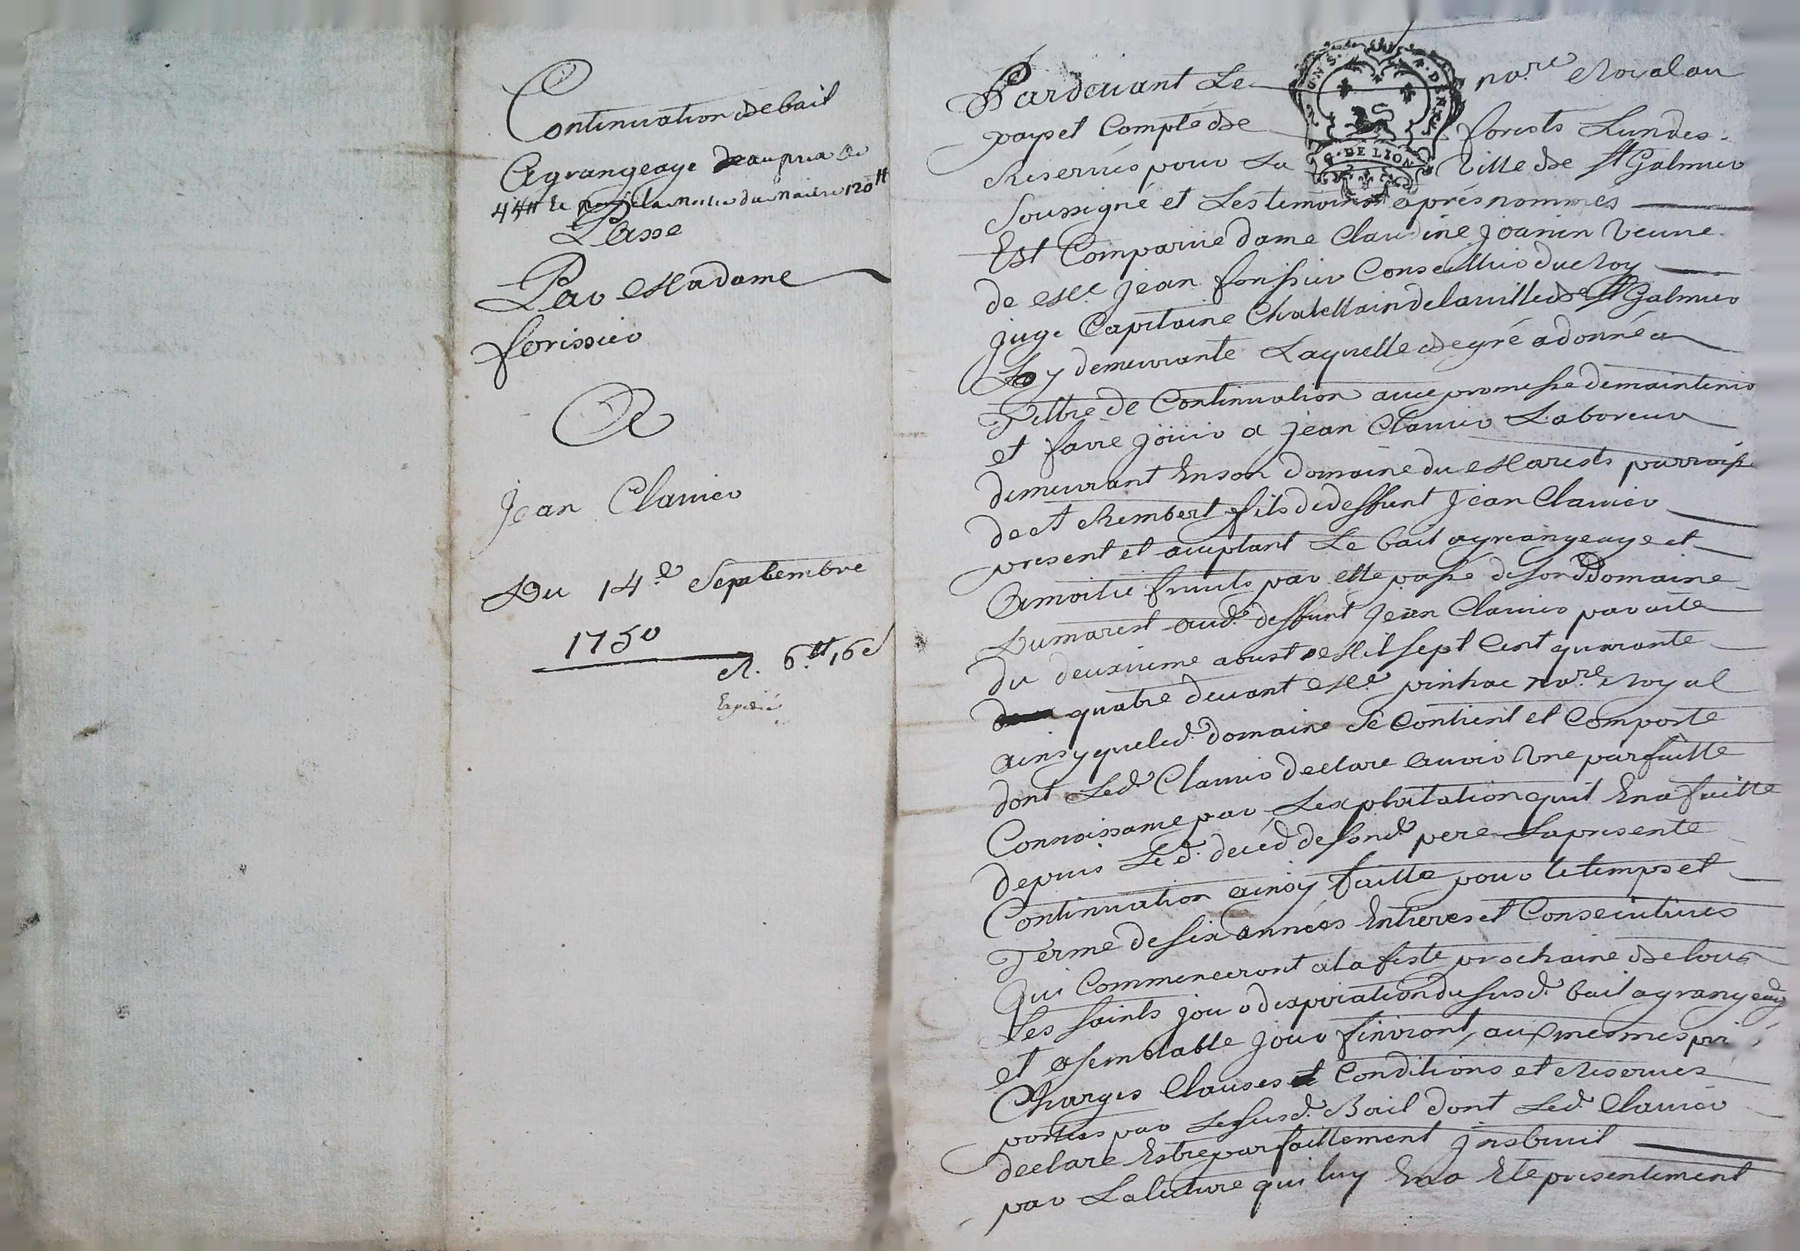 Continuation de bail
Agrangeage au prix de
44tt de la moitié du 120tt
Passe
Par Madame
forissier
A
Jean Clavier
Du 14e Septembre
1750
R. 6tt 16s
Expedié
Pardevant Le nore Royal au
pays et Compté de forests Lun des
Reservés pour La Ville de St Galmier
Soussigné et Les temoins aprés nommés
Est Comparüe dame Claudine Joanin veuve
de Me Jean forissier Conseillier du Roy
juge Capitaine Chatellain de la ville de St Galmier
y demeurante Laquelle de gré a donné a
Tiltre de Continuation avec promesse de maintenir
et faire joüir a jean Clavier Laboreur
demeurant En son domaine du Marests parroisse
de st Rembert fils de deffunt Jean Clavier
present et aceptant Le bail agrangeage et
Amoitié fruits par elle passé de son Domaine
Dumarest aud. deffunt Jean Clavier par acte
du deuxieme aoust Mil sept Cent quarante
quatre devant Me pinhac nore Royal
ainsy que led. domaine se Contient et Comporte
dont Led. Clavier declare avoir Une parfaitte
Connoissance par Lexploitation quil En a faitte
depuis Le d. decéd de sond. pere La presente
Continuation ainsy faitte pour le temps et
Terme de six années Entieres et Consecutives
Qui Commenceront a la feste prochaine de tous
Les saints jour dexpiration du susd. bail agrangeage
et a semblable jour finiront, aux mesmes
Charges Clauses et Conditions et Reserves
portées par Le susd. Bail dont Led. Clavier
declare Estre parfaittement jnstruit
par La lecture qui luy En a Eté presentement